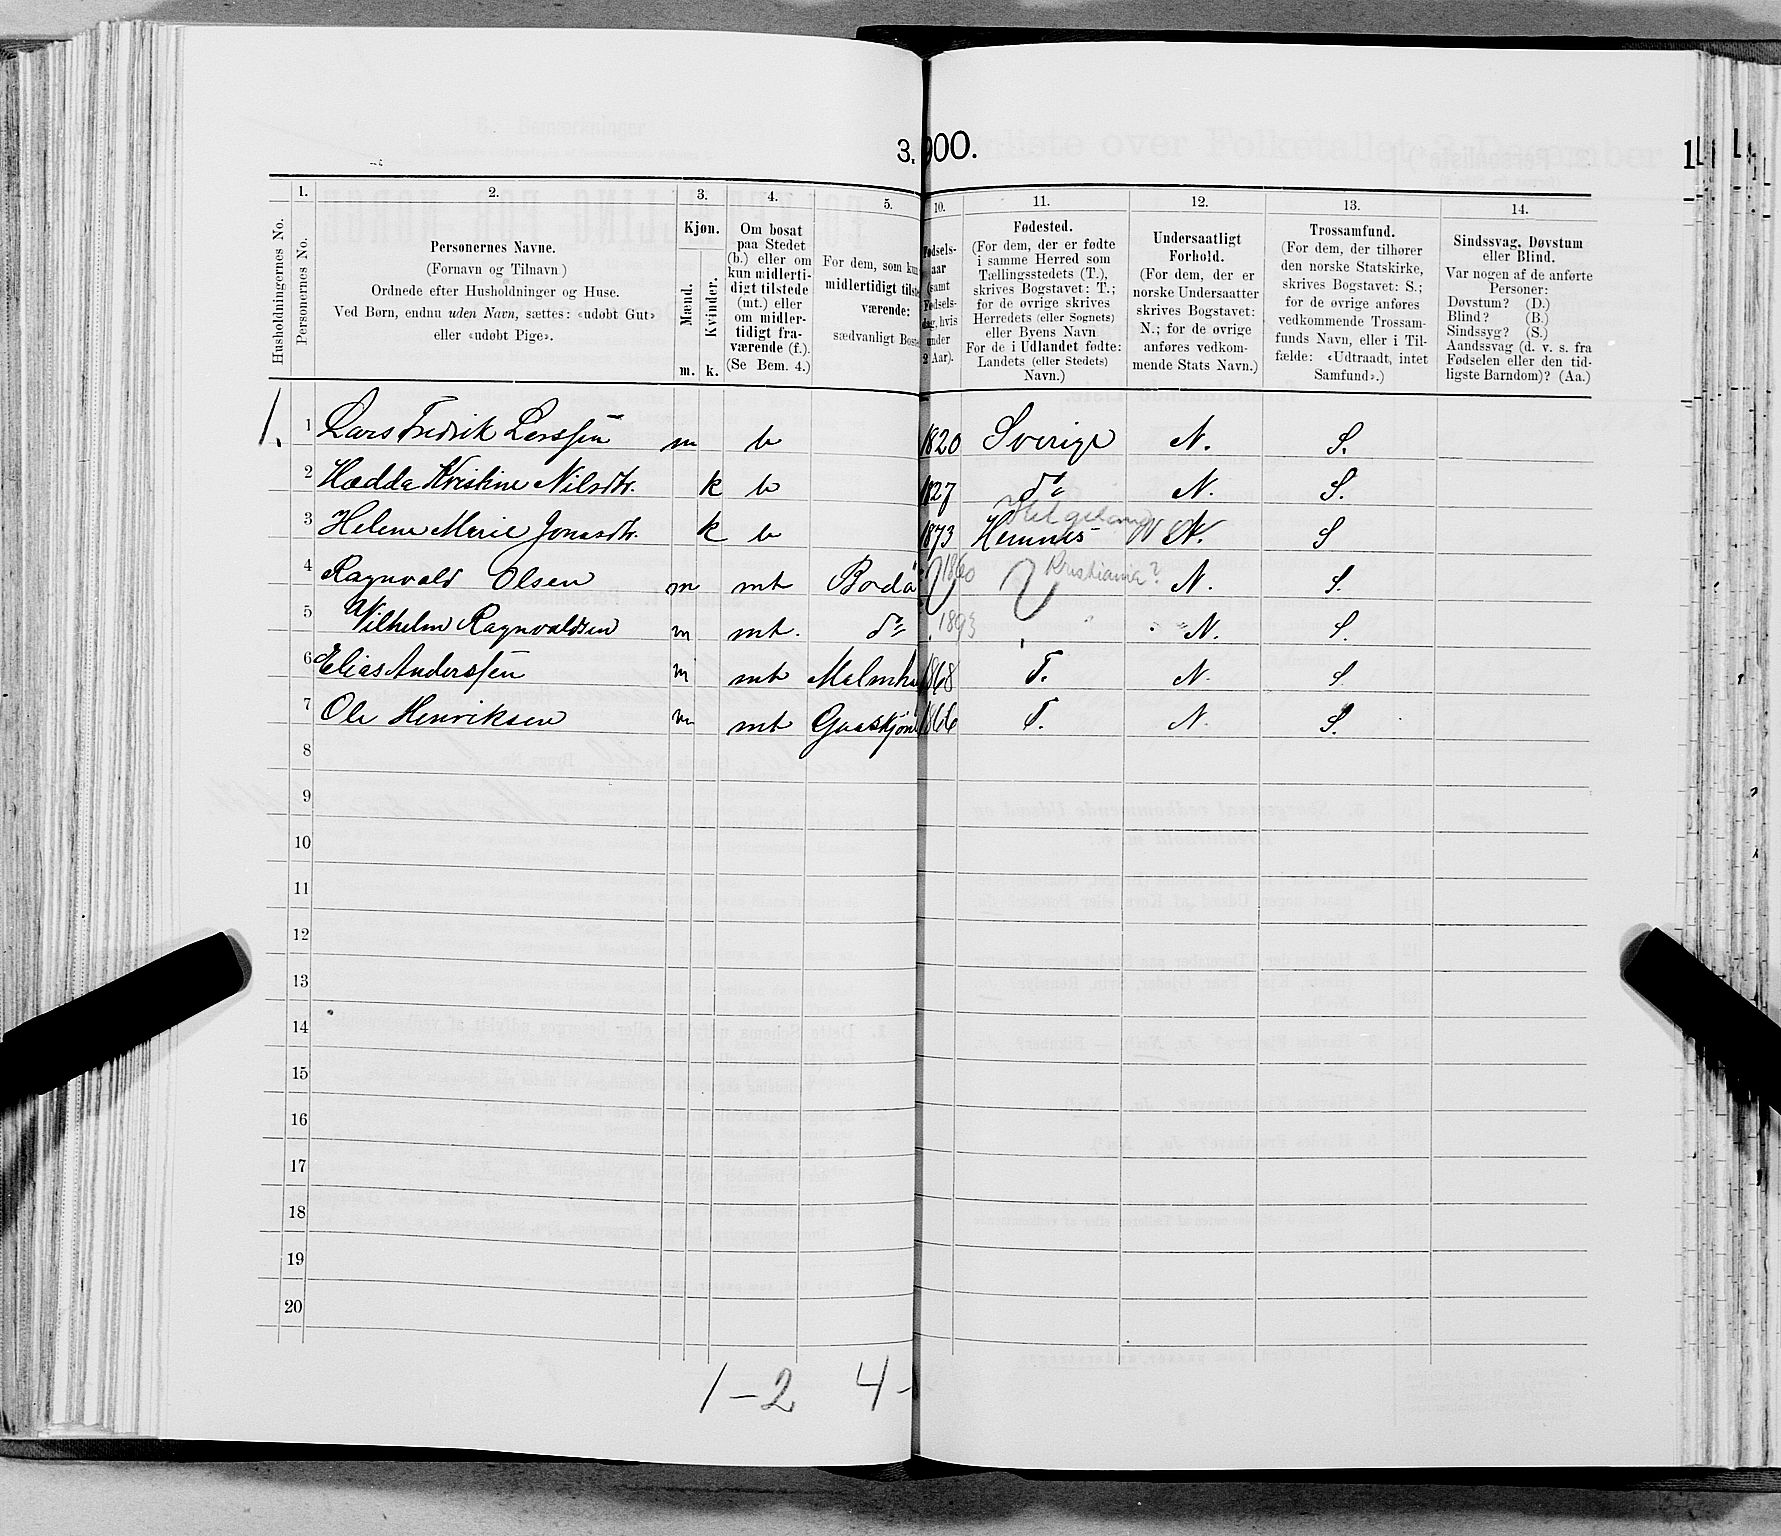 3. 900.
1
1. 2. 3. 4. 5. 10. 11. 12. 13. 14.
Husholdningernes No.
Personernes No.
Personernes Navne.
(Fornavn og Tilnavn)
Ordnede efter Husholdninger og Huse.
Ved Børn, endnu uden Navn, sættes: «udøbt Gut»
eller «udøbt Pige».
Kjøn.
Mænd.
Kvinder.
m. k.
Om bosat
paa Stedet
(b.) eller om
kun midlerti-
digt tilstede
(mt.) eller
om midler-
tidigt fra-
værende (f.).
(Se Bem. 4.)
For dem, som kun
midlertidigt tilste
værende:
sædvanligt Boste
Fødsels-
aar
(samt
Fødsels-
dag, hvis
under
2 Aar).
Fødested.
(For dem, der er fødte
i samme Herred som
Tællingsstedets (T.),
skrives Bogstavet: T.;
for de øvrige skrives
Herredets (eller Sognets)
eller Byens Navn
For de i Udlandet fødte:
Landets (eller Stedets)
Navn.)
Undersaatligt
Forhold.
(For dem, der er
norske Undersaatter
skrives Bogstavet:
N.; for de øvrige
anføres vedkom-
mende Stats Navn.)
Trossamfund.
(For dem, der tilhører
den norske Statskirke,
skrives Bogstavet: S.;
for de øvrige anføres
vedkommende Trossam-
funds Navn, eller i Til-
fælde: «Udtraadt, intet
Samfund».)
Sindssvag, Døvstum
eller Blind.
Var nogen af de anførte
Personer:
Døvstum? (D.)
Blind? (B.)
Sindssyg? (S.)
Aandssvag (d. v. s. fra
Fødselen eller den tid-
ligste Barndom)? (Aa.)
1. 1 Lars Fredrik Larssen m b 1820 Sverige N. S.
2 Hedda Kristine Nilsdtr. k b 1827 do N. S.
Helgeland
3 Helene Marie Jonasdtr. k b 1873 Hemnes N. S
4 Ragnvald Olsen m mt Bodø 1860 ? Kristiania? N. S.
5 Vilhelm Ragnvaldsen m mt. do 1893 " N. S.
6 Elias Anderssen m mt 1868 T. N. S
7 Ole Henriksen m mt 1866 T. N. S.
8
9
10
11
12
13
14
15
16
17
18
19
20
1-2 4-